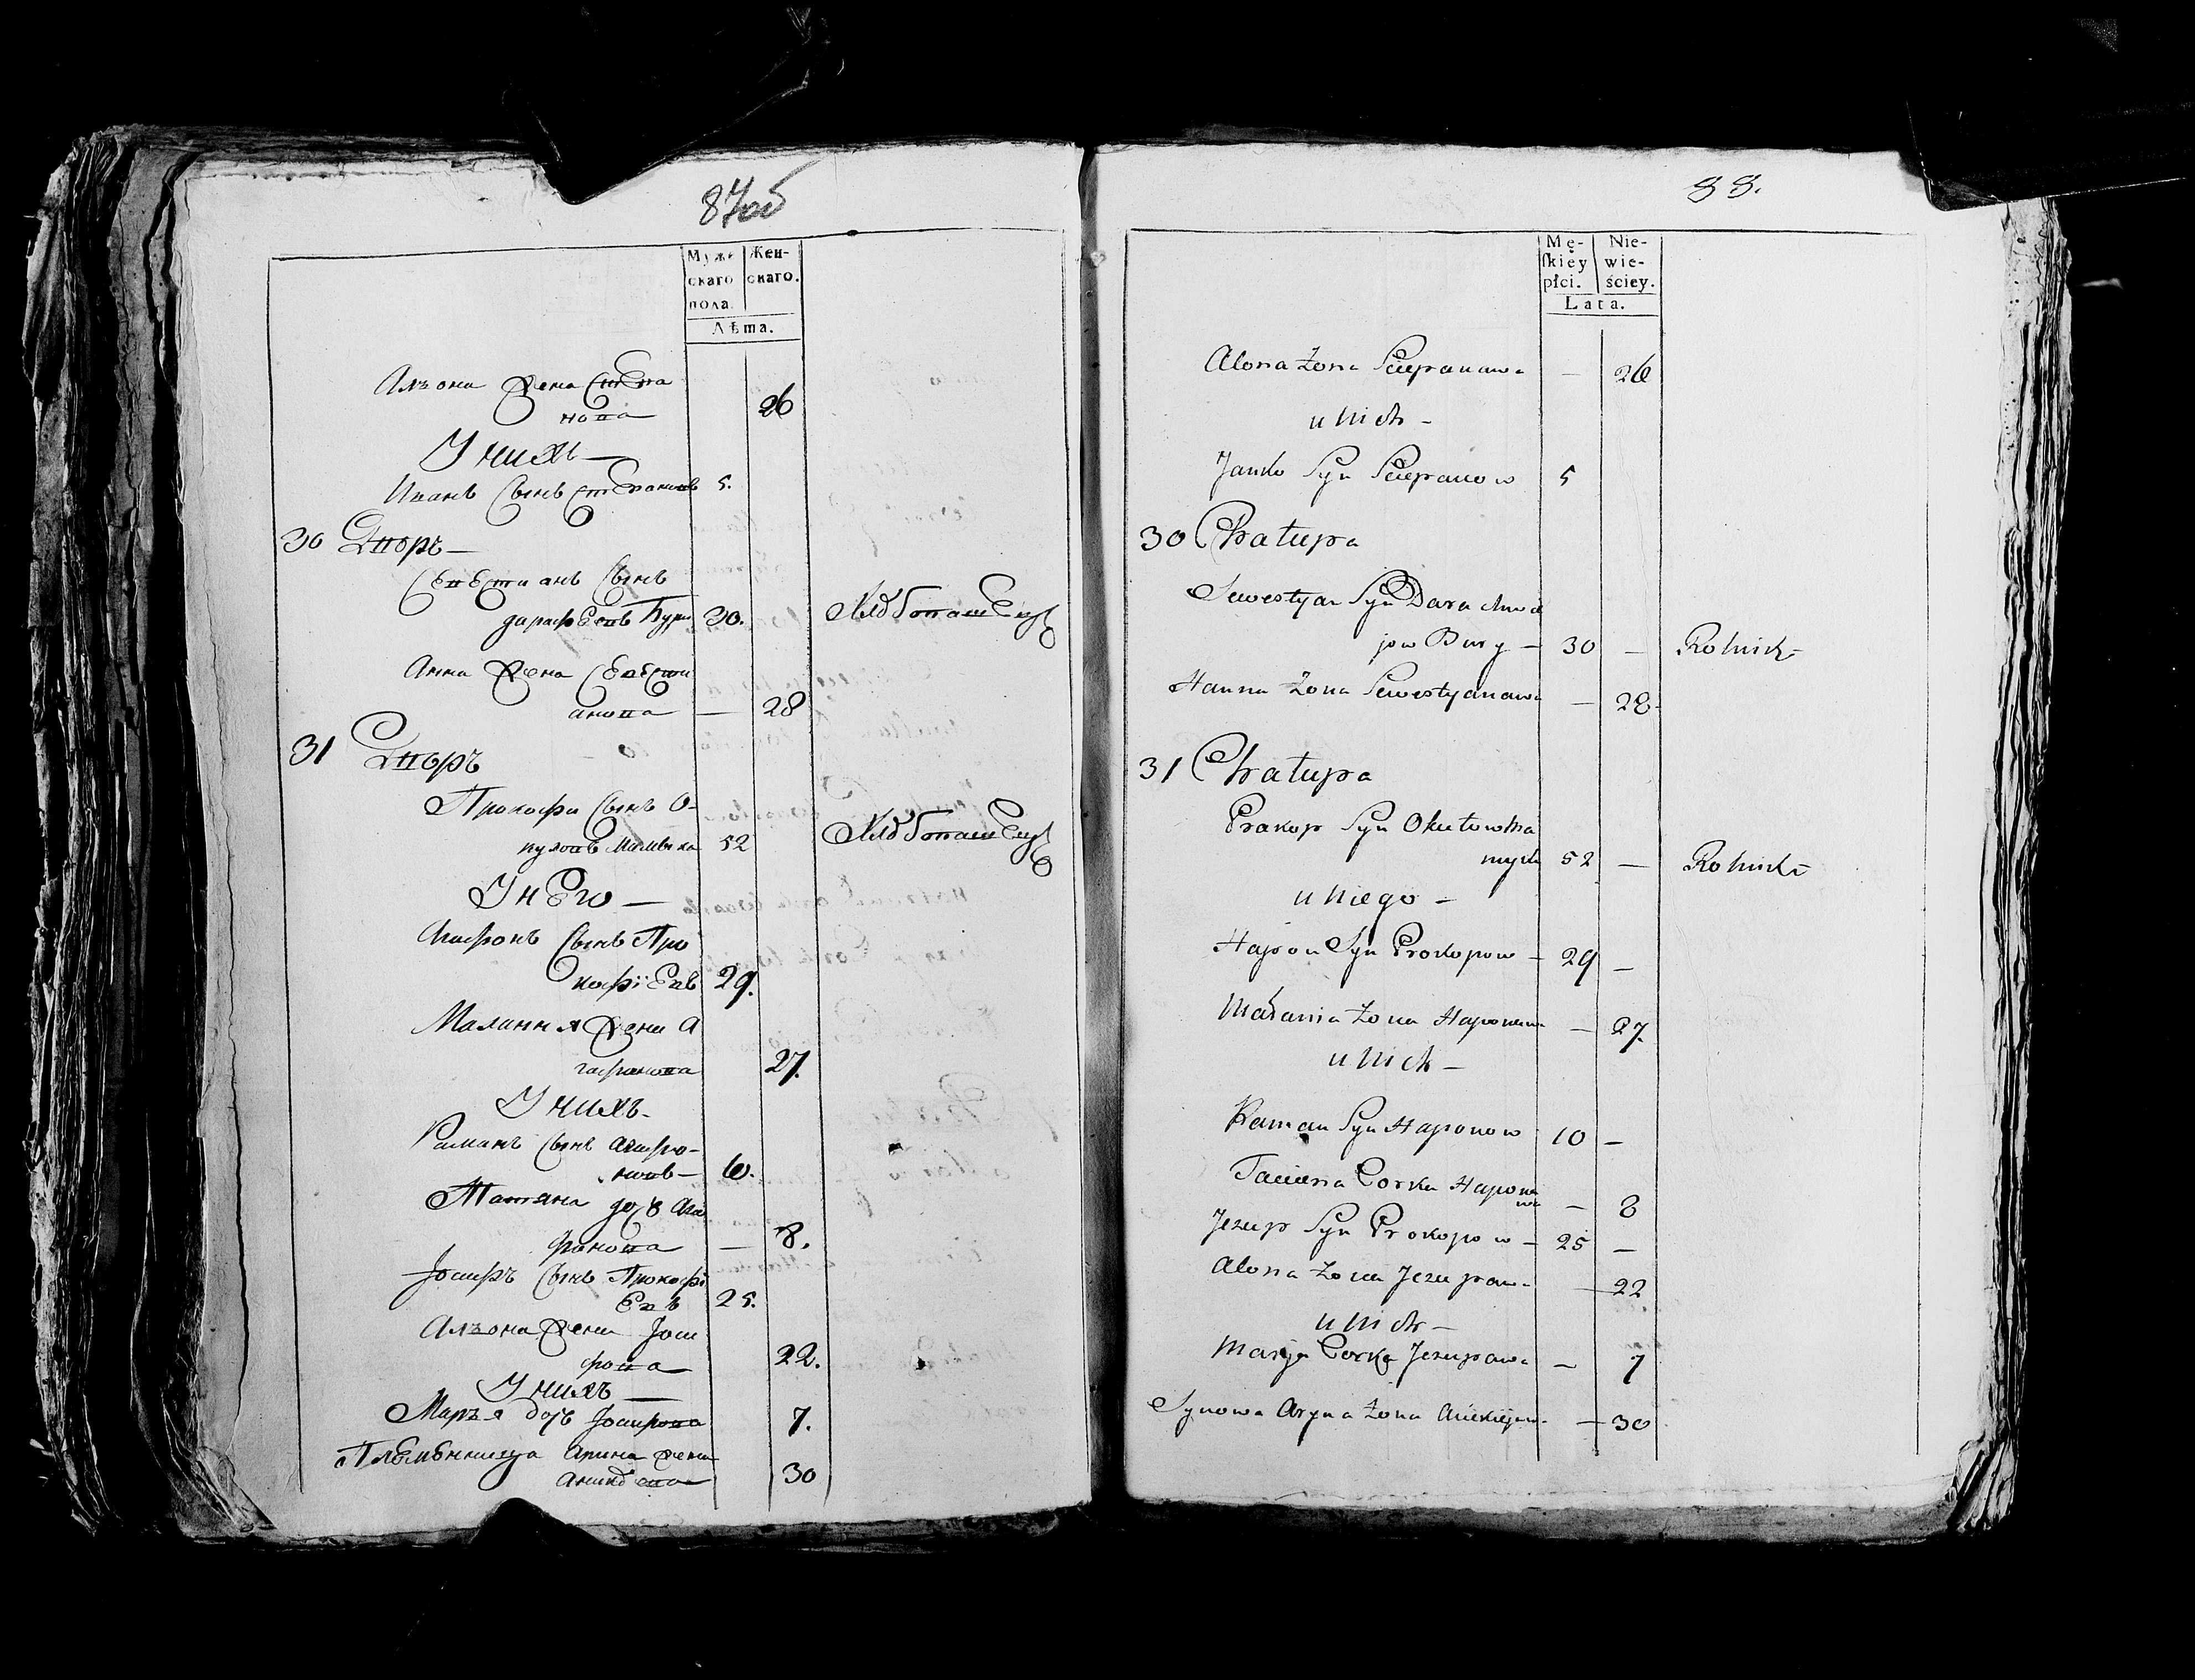 87об
Муже
скаго
пола.
Жен-
скаго.
Лѣта.
Алѣона Жена Степа
нова 26
У нихъ —
Иванъ Сынъ Степановъ 5.
30 Дворъ —
Севестианъ Сынъ
дарафеевъ Буры 30. Хлѣбопашецъ
Анна Жена Севести
анова — 28
31 Дворъ
Прокофи Сынъ О-
52 Хлѣбопашецъ
У него —
Агафонъ Сынъ Про
кофіевъ 29.
Малання Жена А
гафонова 27.
У нихъ.
Раманъ Сынъ Агафо-
новъ — 10.
Татяна дочь Ага
фонова — 8.
Іосифъ Сынъ Прокофі
евъ 25.
Алѣона Жена Іоси
фова 22.
У нихъ —
Маръя дочь Іосифова 7.
Племѣнница Арина Жена
30
88.
Mę-
skiey
płci.
Nie-
wie-
ściey.
Lata.
Alona Żona Sciepanawa — 26
u Nich —
Janko Syn Sciepanow 5
30 Chatupa
Sewestyan Syn Darachwie
jow Bury — 30 — Rolnik —
Hanna Żona Sewestyanawa — 28 -
31 Chatupa
Prakop Syn
52 — Rolnik —
u Niego —
Hapon Syn Prokopow — 29 —
Małania Żona Haponawa — 27.
u Nich —
Raman Syn Haponow 10 —
Taciana Corka Hapona
wa — 8
Jezup Syn Prokopow — 25 —
Alona Żona Jezupawa — 22
u Nich —
Marya Corka Jezupawa — 7
Synowa Aryna Żona — 30